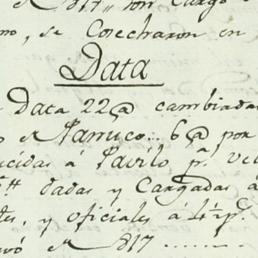 de 1817 son Cargo
no, se Cosecharon en
Data
Data 22@ cambiadas
6@ por
ducidas á Pavilo pr.
dadas y Cargadas á
tes, y oficiales á
de 1817